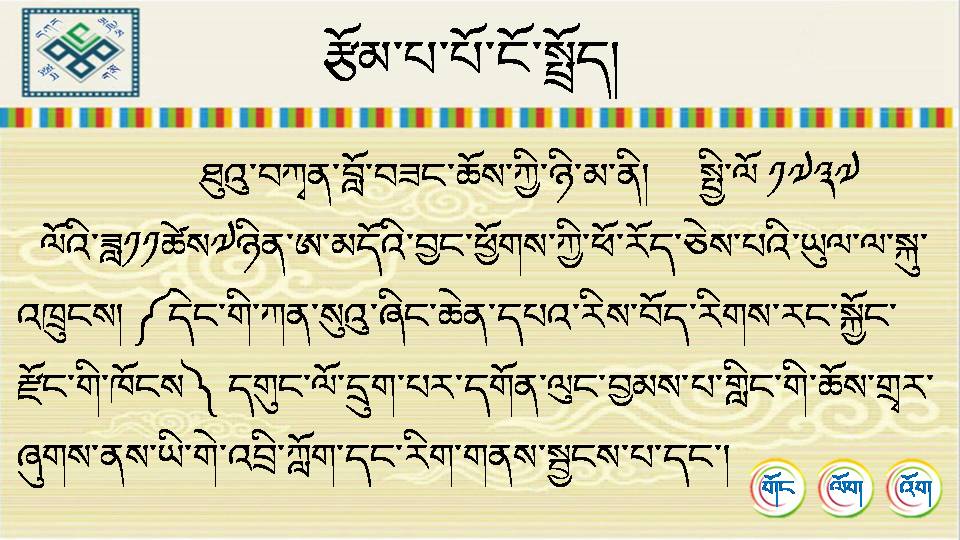 རྩོམ་པ་པོ་ངོ་སྤྲོད།
ཐུའུ་བཀྭན་བློ་བཟང་ཆོས་ཀྱི་ཉི་མ་ནི། སྤྱི་ལོ་༡༧༣༧
ལོའི་ཟླ༡༡ཚེས༧ཉིན་ཨ་མདོའི་བྱང་ཕྱོགས་ཀྱི་ཕོ་རོད་ཅེས་པའི་ཡུལ་ལ་སྐུ་
འཁྲུངས། ༼དེང་གི་ཀན་སུའུ་ཞིང་ཆེན་དཔའ་རིས་བོད་རིགས་རང་སྐྱོང་
རྫོང་གི་ཁོངས༽ དགུང་ལོ་དྲུག་པར་དགོན་ལུང་བྱམས་པ་གླིང་གི་ཆོས་གྲྭར་
ཞུགས་ནས་ཡི་གེ་འབྲི་ཀློག་དང་རིག་གནས་སྦྱངས་པ་དང་།
གོང ལོག འོག